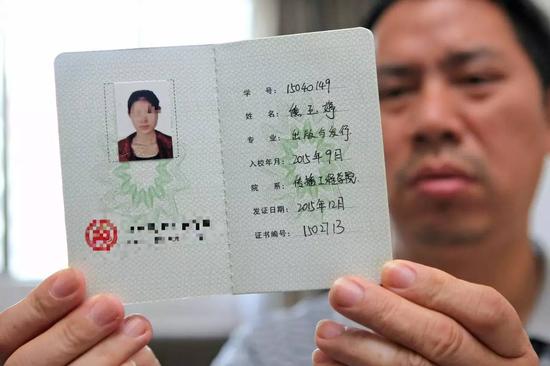 学 号: 15040149
姓 名:
专 业: 出版与发行
入校年月: 2015年9月
院 系: 传播工程学院
发证日期: 2015年12月
证书编号: 1502713